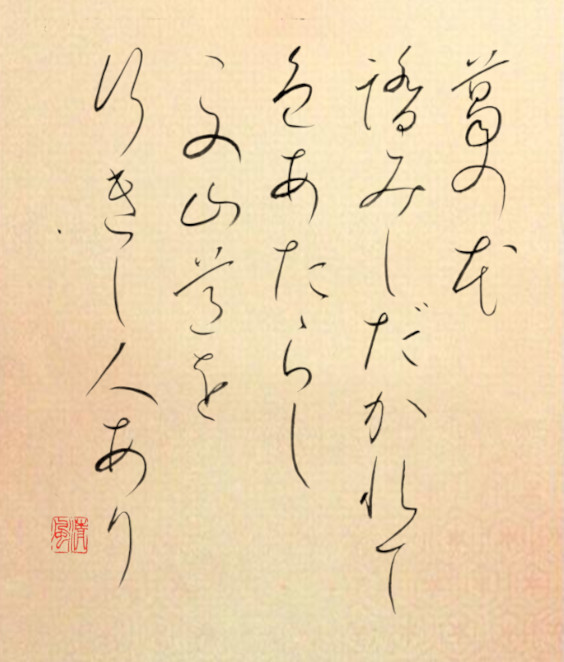 葛の花
踏みしだかれて
色あたらし
この山道を
行きし人あり